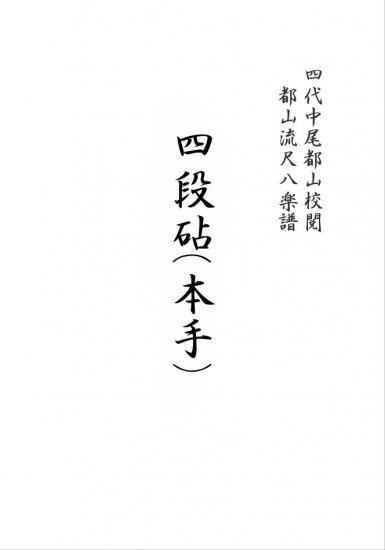 四代中尾都山校閲
都山流尺八楽譜
四段砧(本手)